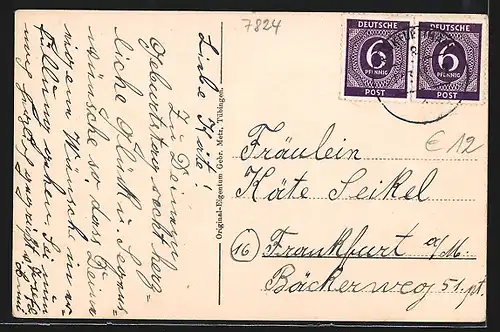 7824
Liebe Käte!
Zu Deinem
Geburtstag recht herz-
liche Glück- u. Segens-
wünsche so, dass Deine
Wünsche in
füllung gehen. Sei nun
Original-Eigentum Gebr. Metz, Tübingen.
DEUTSCHE
6
PFENNIG
POST
DEUTSCHE
6
PFENNIG
POST
€ 12
Fräulein
Käte Seikel
(16) Frankfurt a/M.
Bäckerweg 51 pt.